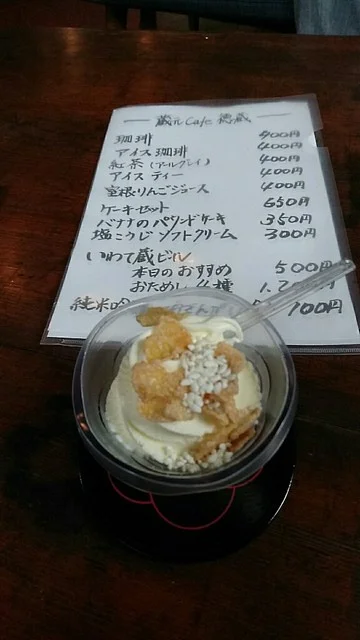 蔵ルCafe 徳蔵
珈琲 400円
アイス珈琲 400円
紅茶(アールグレイ) 400円
アイスティー 400円
室根りんごジュース 400円
ケーキセット 650円
バナナのパウンドケーキ 350円
塩こうじソフトクリーム 300円
いわて蔵ビール
本日のおすすめ 500円
おためし
純米吟 100円